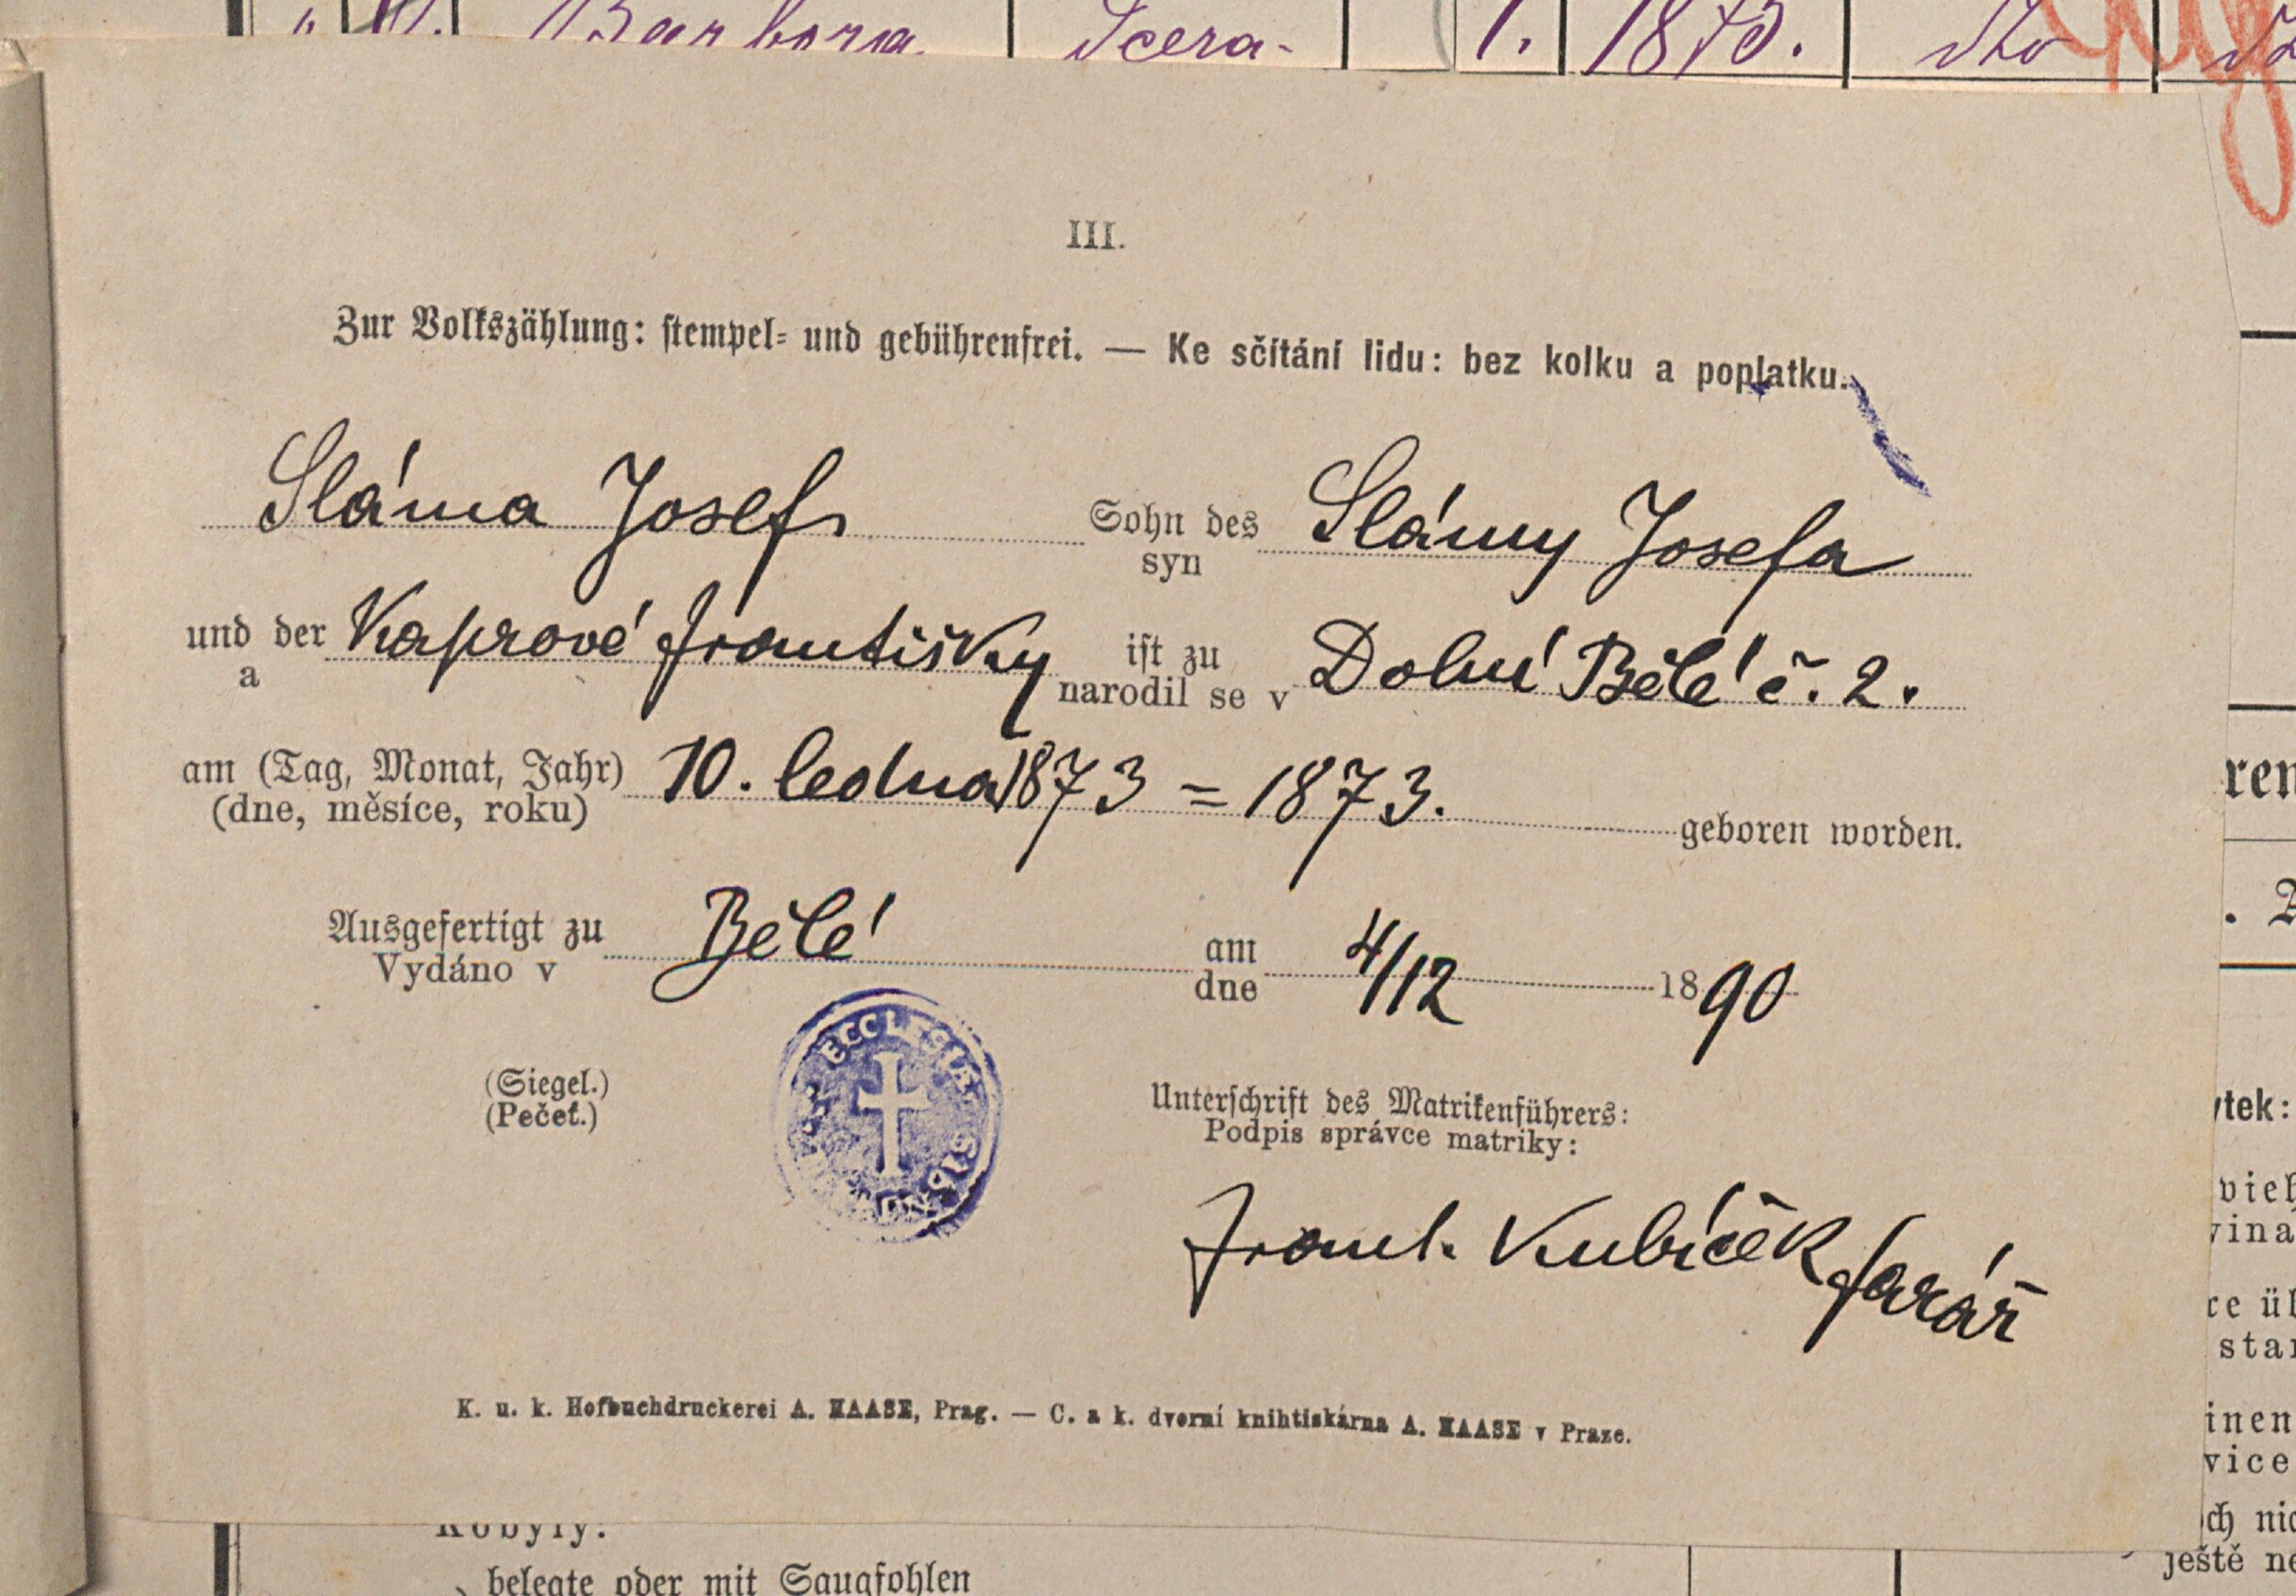 Barbora dcera 1. 1875. dto
III.
Zur Volkszählung: stempel- und gebührenfrei. — Ke sčítání lidu: bez kolku a poplatku.
Sláma Josef Sohn des Slámy Josefa
syn
und der Kaprové Františky ist zu Dolní Bělé č. 2.
a narodil se v
am (Tag, Monat, Jahr) 10. ledna 1873 = 1873. geboren worden.
(dne, měsíce, roku)
Ausgefertigt zu Bělé am 4/12 1890
Vydáno v dne
ECCLESIÆ
(Siegel.)
(Pečeť.)
Unterschrift des Matrikenführers:
Podpis správce matriky:
Frant. Kubíček farář
K. u. k. Hofbuchdruckerei A. HAASE, Prag. — C. a k. dvorní knihtiskárna A. HAASE v Praze.
Kobyly:
belegte oder mit Saugfohlen
ještě